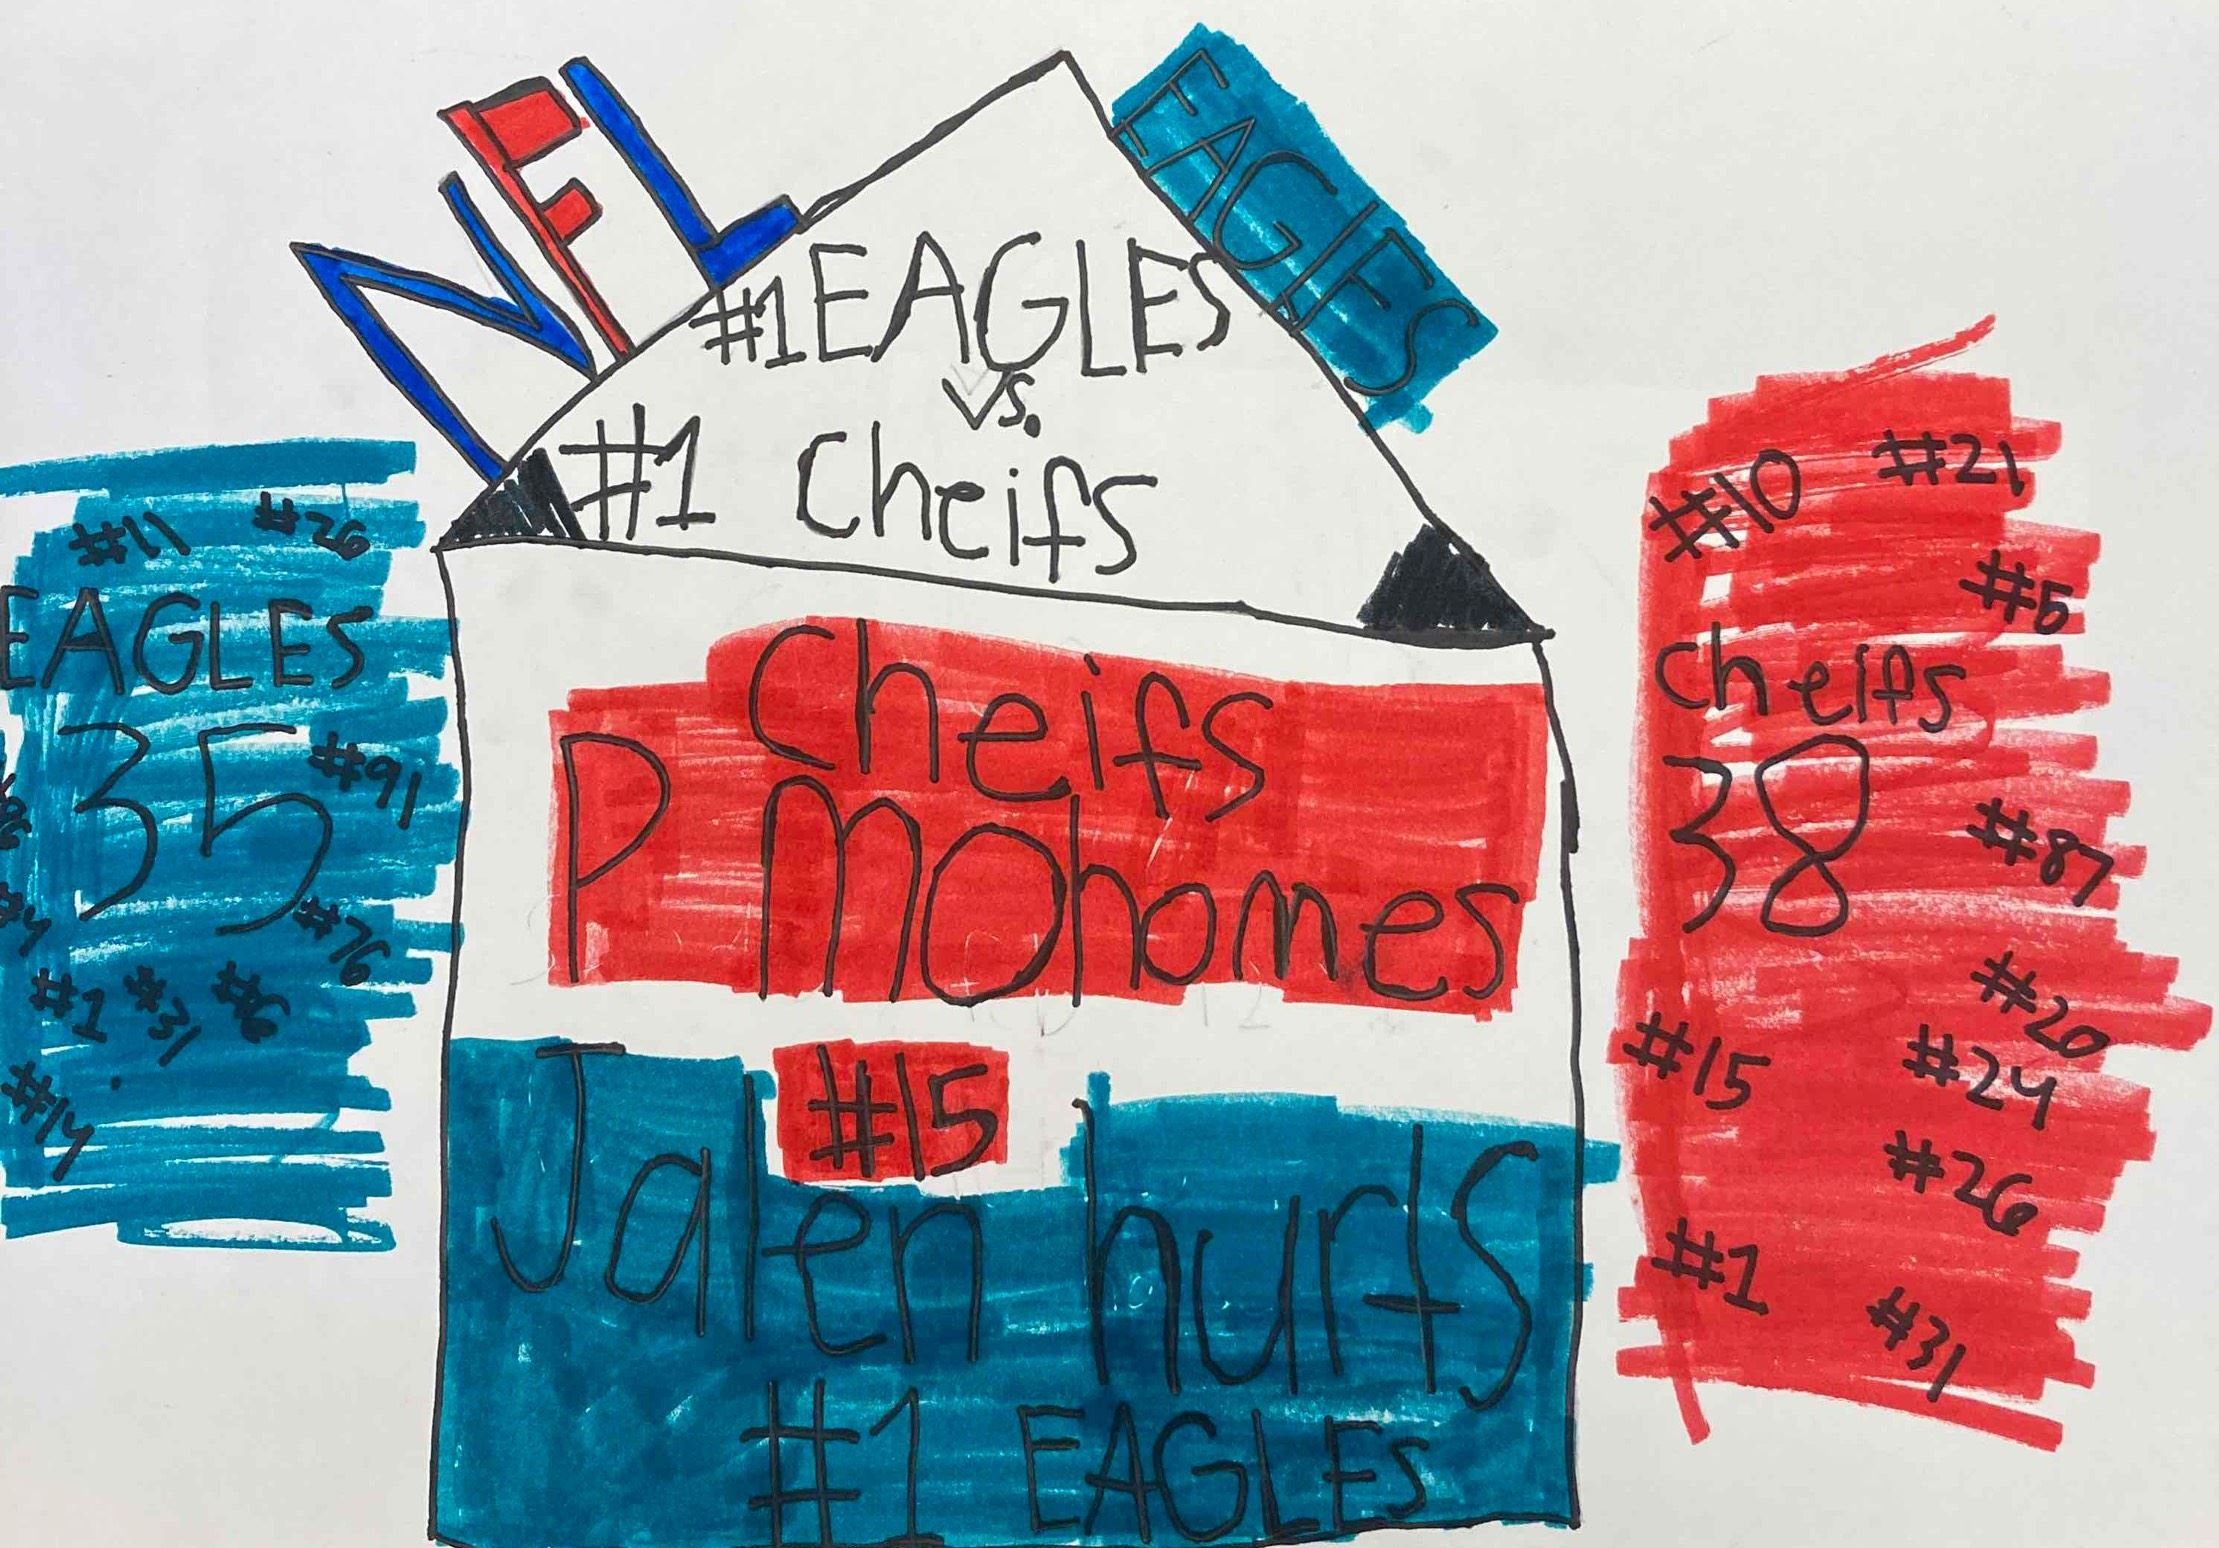 NFL
EAGLES
#1 EAGLES
vs.
#1 Cheifs
#11 #26
EAGLES
35
#91
#76
#1 #31 #6
#14
Cheifs
P MOhomes
#15
Jalen hurts
#1 EAGLES
#10 #21
#5
Cheifs
38
#87
#20
#15 #24
#26
#1
#31